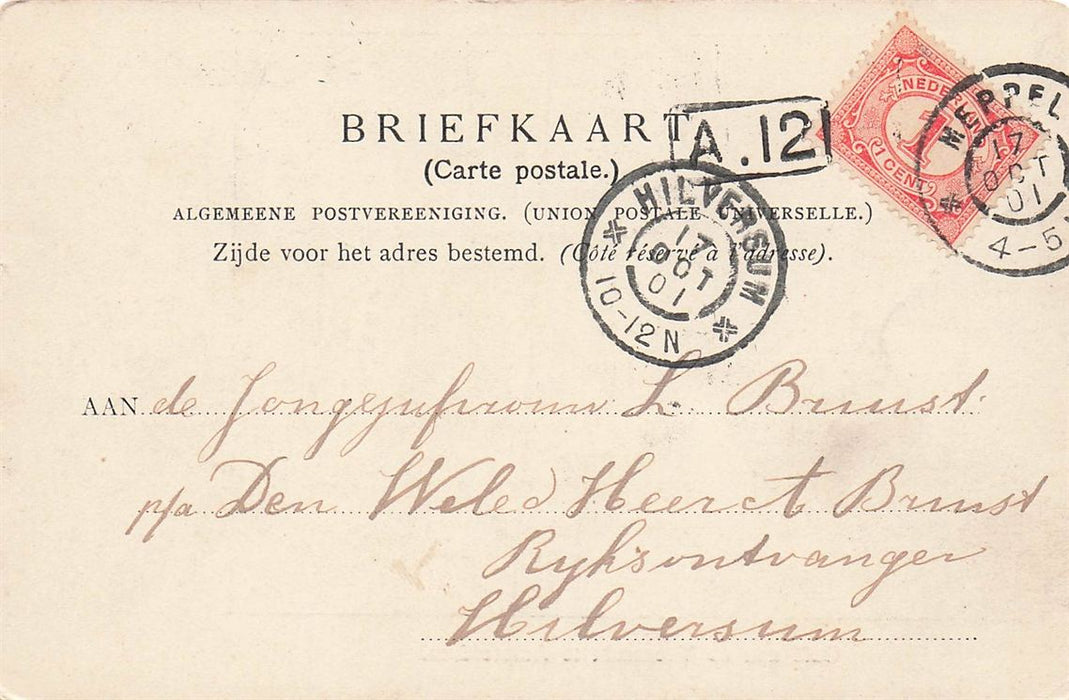 BRIEFKAART
(Carte postale.)
ALGEMEENE POSTVEREENIGING. (UNION POSTALE UNIVERSELLE.)
Zijde voor het adres bestemd. (Côté réservé à l'adresse).
A.12
NEDERLAND
1
1 CENT
MEPPEL
17
OCT
01
4-5
HILVERSUM
17
OCT
01
10-12N
AAN de Jongejufvrouw L. Brunst.
p/a Den Weled Heer Brunst
Ryksontvanger
Hilversum